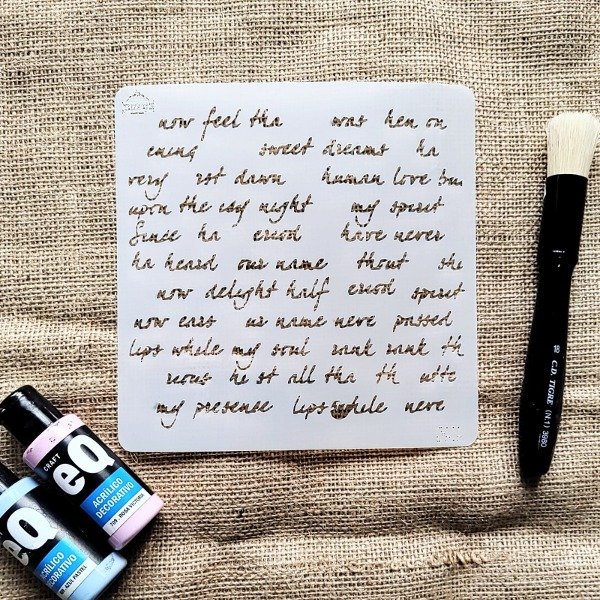 now feel tha was hen on
ening sweet dreams ha
very rst dawn human love bu
upon the icy night my spirit
Since ha eriod have never
ha heard our name thout she
now delight half eriod spirit
now ears ur name neve passed
lips while my soul rank rank th
rious he st all tha th utte
my presence lips while neve
CRAFT
eQ
ACRÍLICO
DECORATIVO
eQ
ACRÍLICO
DECORATIVO
C.D. TIGRE (N1) 3980